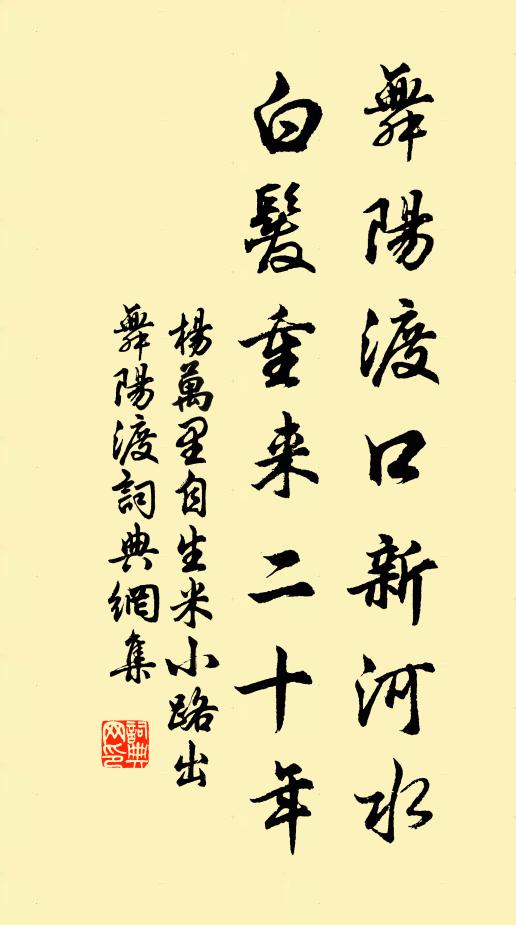 舞陽渡口新河水
白髮重来二十年
楊萬里自生米小路出
舞陽渡詞典網集
詞典网印